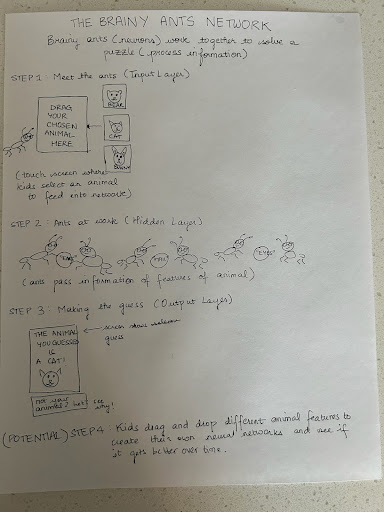 THE BRAINY ANTS NETWORK
Brainy ants (neurons) work together to solve a
puzzle (process information)
STEP 1 : Meet the ants (Input Layer)
DRAG
YOUR
CHOSEN
ANIMAL
HERE
BEAR
CAT
BUNNY
(touch screen where
kids select an animal
to feed into network)
STEP 2 : Ants at work (Hidden Layer)
EYES
(ants pass information of features of animal)
STEP 3 : Making the guess (Output Layer)
THE ANIMAL
YOU GUESSED
IS
A CAT!
screen shows
guess
Not your
animal? Let's see
why!
(POTENTIAL) STEP 4 : Kids drag and drop different animal features to
create their own neural networks and see if
it gets better over time.